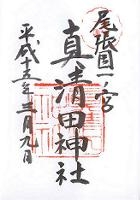 尾張国一ノ宮
真清田神社
平成十五年三月九日